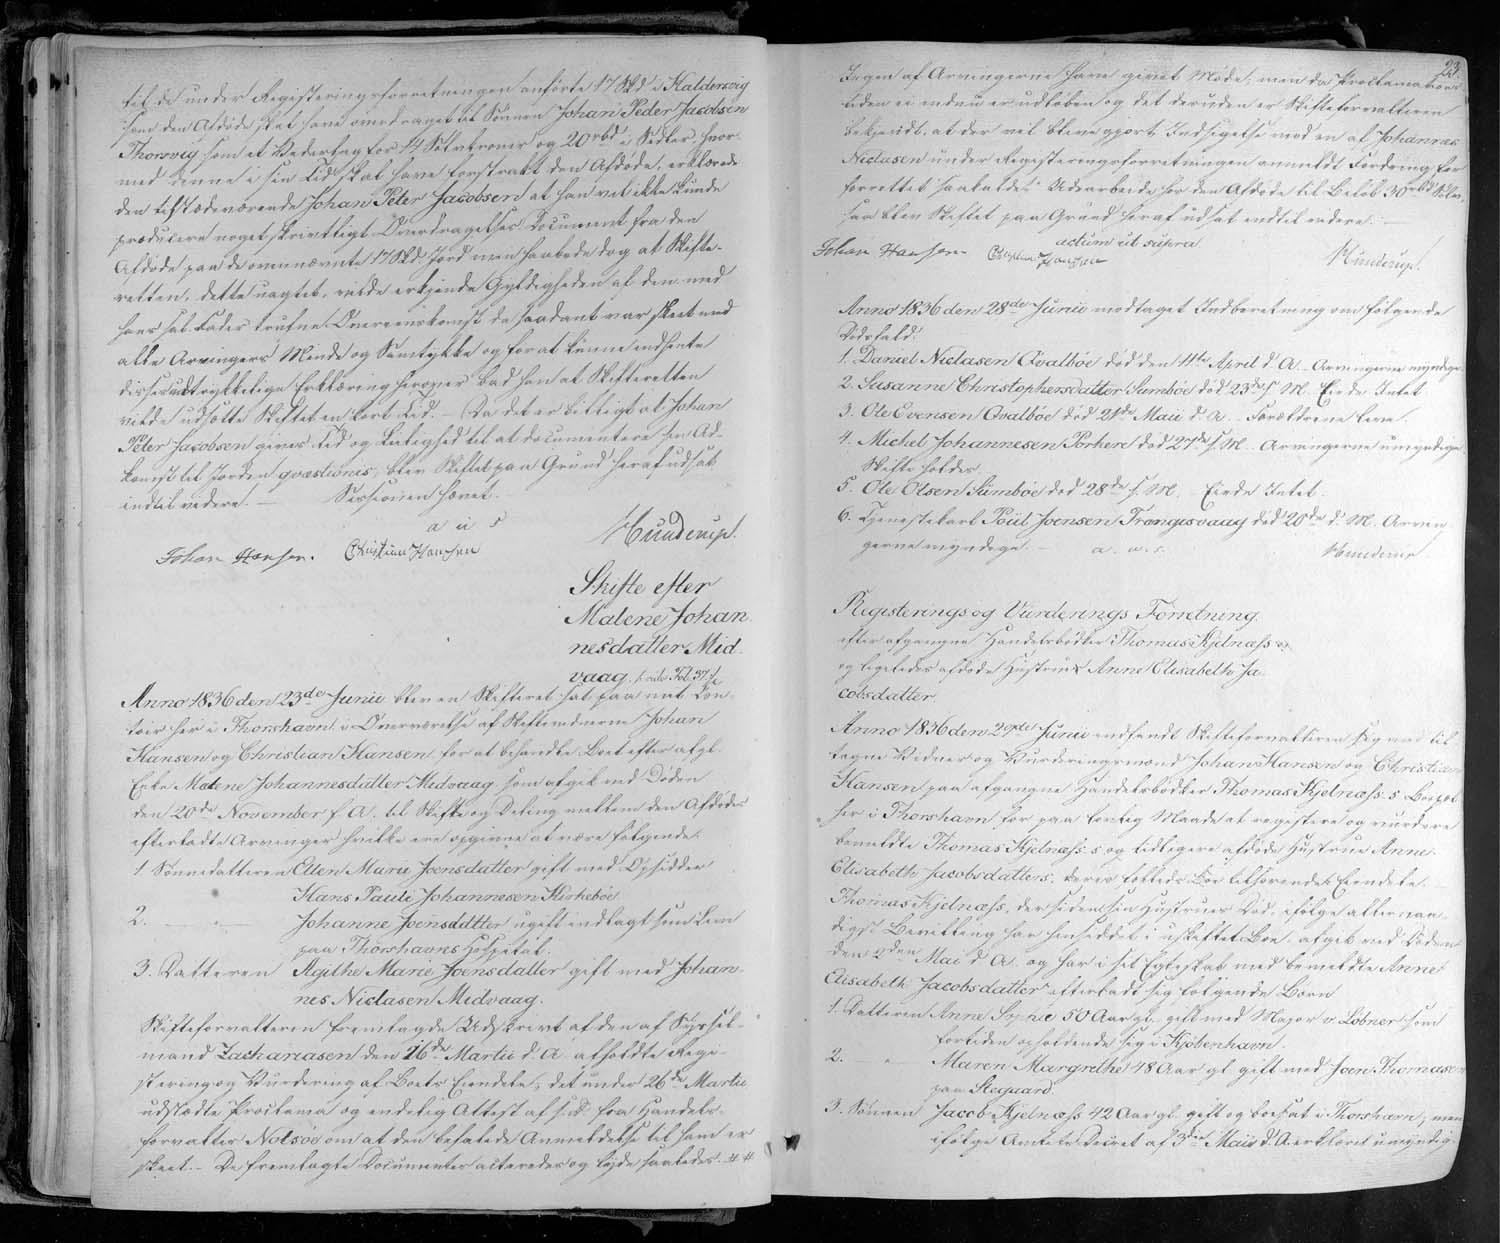 til de under Registeringsforretningen anførte 17 Skd i Haldersvig
som den Afdøde skal have overdraget til Sønnen Johan Peder Jacobsen
Thorsvig som et Vederlag for 14 Sølvkroner og 20 rbd i Sedler, hvor-
med denne i sin Tid skal have forstrakt den Afdøde, erklærede
den tilstædeværende Johan Peter Jacobsen at han vel ikke kunde
producere noget skrivtligt Overdragelses Document fra den
Afdøde paa de ovennævnte 17 Skd Jord men haabede dog at Skifte-
retten, dette uagtet, vilde erkjende Gyldigheden af den med
hans sal. Fader trufne Overeenskomst da saadant var skeet med
alle Arvingers Minde og Samtykke og for at kunne indhente
disses udtrykkelige Erklæring herover bad han at Skifteretten
vilde udsætte Skiftet en kort Tid. — Da det er billigt at Johan
Peter Jacobsen gives Tid og Leilighed til at documentere sin Ad-
komst til Jorden qvæstionis, blev Skiftet paa Grund heraf udsat
indtil videre. — Sessionen hævet.
a u s
Hunderup.
Johan Hansen. Christian Hansen
Skifte efter
Malene Johan-
nesdatter Mid-
vaag. Fol. 57.
Anno 1836 den 23de Junii blev en Skifteret sat paa mit Con-
toir her i Thorshavn i Overværelse af Skiftevidnerne Johan
Hansen og Christian Hansen for at behandle Boet efter afgl.
Enke Malene Johannesdatter Midvaag som afgik ved Døden
den 20de November f. A. til Skifte og Deling mellem den Afdødes
efterladte Arvinger hvilke ere opgivne at være følgende:
1. Sønnedatteren Ellen Marie Joensdatter gift med Opsidder
Hans Pauli Johannesen Kirkebøe
2. — Johanne Joensdatter ugift indlagt som Lem
paa Thorshavns Hospital.
3. Datteren Agithe Marie Joensdatter gift med Johan-
nes Niclasen Midvaag.
Skifteforvalteren fremlagde Udskrivt af den af Syssel-
mand Zachariasen den 16de Martii d. A. afholdte Regi-
stering og Vurdering af Boets Eiendele, det under 26de Martii
udstædte Proclama og endelig Attest af s. D. fra Handels-
forvalter Nolsøe om at den befalede Anmeldelse til ham er
skeet. — De fremlagte Documenter acteredes og lyde saaledes. ##
23.
Ingen af Arvingerne have givet Møde, men da Proclamations
tiden ei endnu er udløben og det desuden er Skifteforvalteren
bekjendt, at der vil blive gjort Indsigelse mod en af Johannes
Niclasen under Registeringsforretningen anmeldt Fordring for
forrettet saakaldet Udarbeide for den Afdøde til Beløb 30 rbd Sølv,
saa blev Skiftet paa Grund heraf udsat indtil videre. —
actum ut supra
Johan Hansen Christian Hansen Hunderup.
Anno 1836 den 28de Junii modtaget Indberetning om følgende
Dødsfald:
1. Daniel Niclasen Qvalbøe død den 11te April d. A. Arvingerne myndige.
2. Susanne Christophersdatter Sumbøe død 23de s. M. Eiede Intet
3. Ole Evensen Qvalbøe død 21de Maii d. A. Forældrene leve.
4. Michel Johannesen Porkere død 27de s. M. Arvingerne umyndige.
Skifte holdes.
5. Ole Olsen Sumbøe død 28de s. M. Eiede Intet.
6. Tjenestekarl Poül Joensen Trangisvaag død 20de d. M. Arvin-
gerne myndige. — a. u. s. Hunderup
Registerings og Vurderings Forretning
efter afgangne Handelsbødker Thomas Kjelnæss og
og ligeledes afdøde Hustrue Anne Elisabeth Ja-
cobsdatter.
Anno 1836 den 29de Junii indfandt Skifteforvalteren sig med til-
tagne Vidner og Vurderingsmænd Johan Hansen og Christian
Hansen paa afgangne Handelsbødker Thomas Kjelnæss's Bopæl
her i Thorshavn for paa lovlig Maade at registere og vurdere
bemeldte Thomas Kjelnæss's og tidligere afdøde Hustrue Anne
Elisabeth Jacobsdatters, deres fælleds Boe tilhørende Eiendele. —
Thomas Kjelnæss, der siden sin Hustrues Død, ifølge allernaa-
digst Bevilling har hensiddet i uskiftet Boe, afgik ved Døden
den 9den Mai d. A. og har i sit Egteskab med bemeldte Anne
Elisabeth Jacobsdatter efterladt sig følgende Børn
1. Datteren Anne Sophie 50 Aar gl. gift med Major v. Løbner som
fortiden opholdende sig i Kjøbenhavn.
2. — Maren Margrethe 48 Aar gl. gift med Joen Thomasen
paa Stegaard.
3. Sønnen Jacob Kjelnæss 42 Aar gl. gift og boesat i Thorshavn, men
ifølge Amtets Decret af 3die Maii d. A. erklæret umyndig.